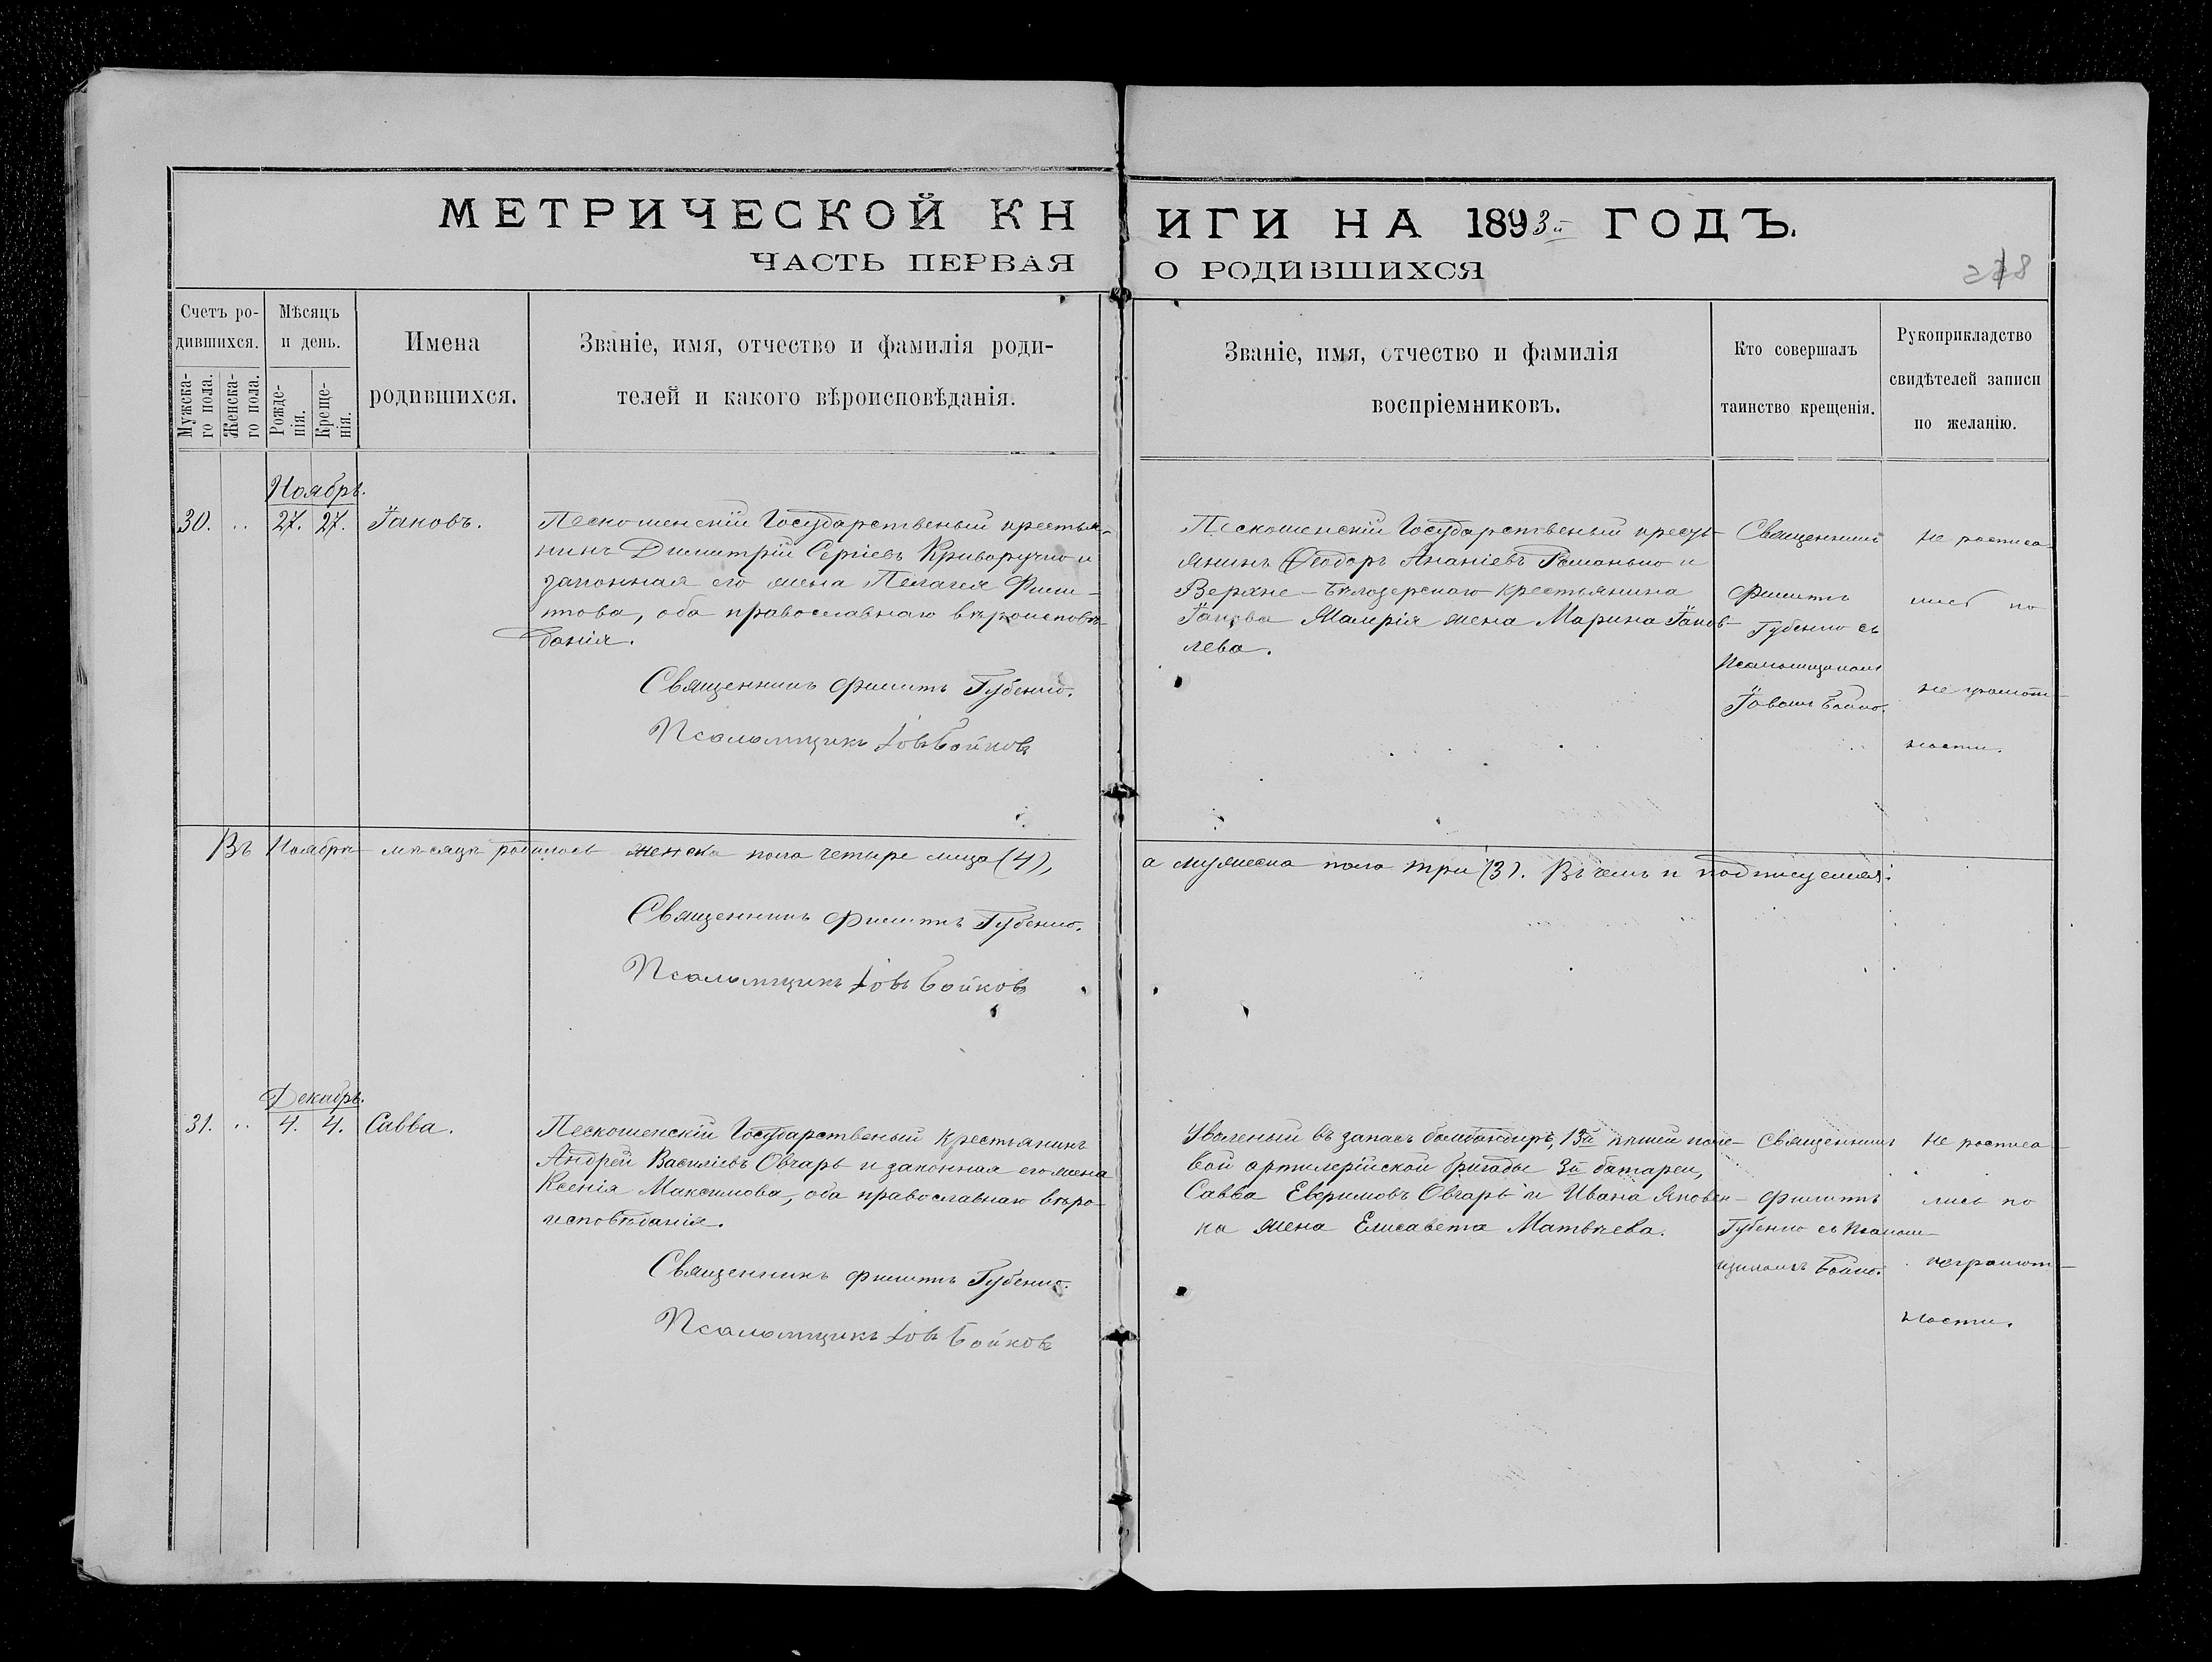 МЕТРИЧЕСКОЙ КНИГИ НА 1893й ГОДЪ.
ЧАСТЬ ПЕРВАЯ О РОДИВШИХСЯ
Счетъ ро-
дившихся.
Мужска-
го пола.
Женска-
го пола.
Мѣсяцъ
и день.
Рожде-
нія.
Креще-
нія.
Имена
родившихся.
Званіе, имя, отчество и фамилія роди-
телей и какого вѣроисповѣданія.
Званіе, имя, отчество и фамилія
воспріемниковъ.
Кто совершалъ
таинство крещенія.
Рукоприкладство
свидѣтелей записи
по желанію.
Ноябрь.
30. 27. 27. Іаковъ.
Пескошенскій Государственый крестья-
нинъ Димитрій Сергіевъ Криворучко и
законная его жена Пелагея Фили-
пова, оба православнаго вѣроисповѣ-
данія.
Священникъ Филипъ Губенко.
Псаломщикъ Іовъ Бойковъ
Пескошенскій Государственый крестья-
янинъ Ѳеодоръ Ананіевъ Романько и
Верхне-Бѣлозерскаго крестьянина
Іакова жена Марина Іаков-
лева.
Священникъ
Филипъ
Губенко съ
Псаломщикомъ
Іовомъ Бойко.
не росписа-
лись по
не грамот-
ности.
Въ Ноябрѣ мѣсяцѣ родилось женска пола четыре лица (4),
а мужеска пола три (3). Въ чемъ и подписуемся:
Священникъ Филипъ Губенко.
Псаломщикъ Іовъ Бойковъ
Декабрь.
31. 4. 4. Савва.
Пескошенскій Государственый Крестьянинъ
Андрей Василіевъ Овчарь и законная его жена
Ксенія Максимова, оба православнаго вѣро-
исповѣданія.
Священникъ Филипъ Губенко.
Псаломщикъ Іовъ Бойковъ
Уволеный въ запасъ бомбандиръ, 13й пѣшей поле-
вой артилерійской бригады 3й батареи,
Савва Евфимовъ Овчарь и Ивана Яковен-
ка жена Елисавета Матвѣева.
Священникъ
Филипъ
Губенко съ Псалом-
щикомъ Бойко.
не росписа-
лись по
неграмот-
ности.